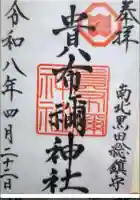 奉拝
南北黒田総鎮守
貴布禰神社
令和八年四月二十二日